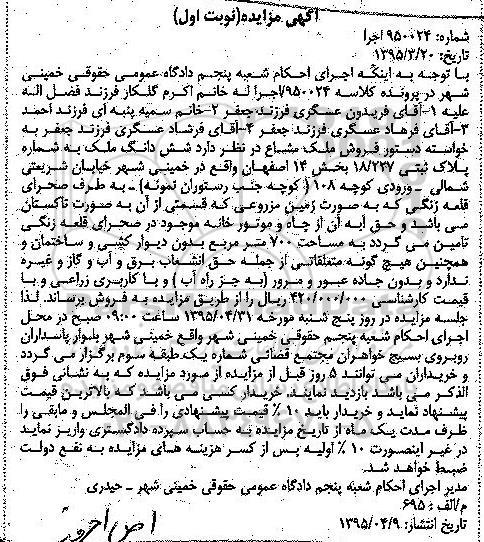 آگهی مزایده(نوبت اول)
شماره: ۹۵۰۰۲۴ اجرا
تاریخ: ۱۳۹۵/۳/۲۰
با توجه به اینکه اجرای احکام شعبه پنجم دادگاه عمومی حقوقی خمینی
شهر در پرونده کلاسه ۹۵۰۰۲۴/اجرا له خانم اکرم گلکار فرزند فضل اله
علیه ۱-آقای فریدون عسگری فرزند جعفر ۲-خانم سمیه پنبه ای فرزند احمد
۳-آقای فرهاد عسگری فرزند جعفر ۴-آقای فرشاد عسگری فرزند جعفر به
خواسته دستور فروش ملک مشاع در نظر دارد شش دانگ ملک به شماره
پلاک ثبتی ۱۸/۲۳۷ بخش ۱۴ اصفهان واقع در خمینی شهر خیابان شریعتی
شمالی - ورودی کوچه ۱۰۸ ( کوچه جنب رستوران نمونه) - به طرف صحرای
قلعه زنگی که به صورت زمین مزروعی که قسمتی از آن به صورت تاکستان
می باشد و حق آبه آن از چاه و موتور خانه موجود در صحرای قلعه زنگی
تامین می گردد به مساحت ۷۰۰ متر مربع بدون دیوار کشی و ساختمان و
همچنین هیچ گونه متعلقاتی از جمله حق انشعاب برق و آب و گاز و غیره
ندارد و بدون جاده عبور و مرور (به جز راه آب ) و با کاربری زراعی و با
قیمت کارشناسی ۴۲۰/۰۰۰/۰۰۰ ریال را از طریق مزایده به فروش برساند. لذا
جلسه مزایده در روز پنج شنبه مورخه ۱۳۹۵/۰۴/۳۱ ساعت ۰۹:۰۰ صبح در محل
اجرای احکام شعبه پنجم حقوقی خمینی شهر واقع خمینی شهر بلوار پاسداران
روبروی بسیج خواهران مجتمع قضائی شماره یک طبقه سوم برگزار می گردد
و خریداران می توانند ۵ روز قبل از مزایده از مورد مزایده که به نشانی فوق
الذکر می باشد بازدید نمایند. خریدار کسی می باشد که بالاترین قیمت
پیشنهاد نماید و خریدار باید ۱۰ ٪ قیمت پیشنهادی را فی المجلس و مابقی را
ظرف مدت یک ماه از تاریخ مزایده به حساب سپرده دادگستری واریز نماید
در غیر اینصورت ۱۰ ٪ اولیه پس از کسر هزینه های مزایده به نفع دولت
ضبط خواهد شد.
مدیر اجرای احکام شعبه پنجم دادگاه عمومی حقوقی خمینی شهر - حیدری
م/الف: ۶۹۵
تاریخ انتشار: ۱۳۹۵/۰۴/۹